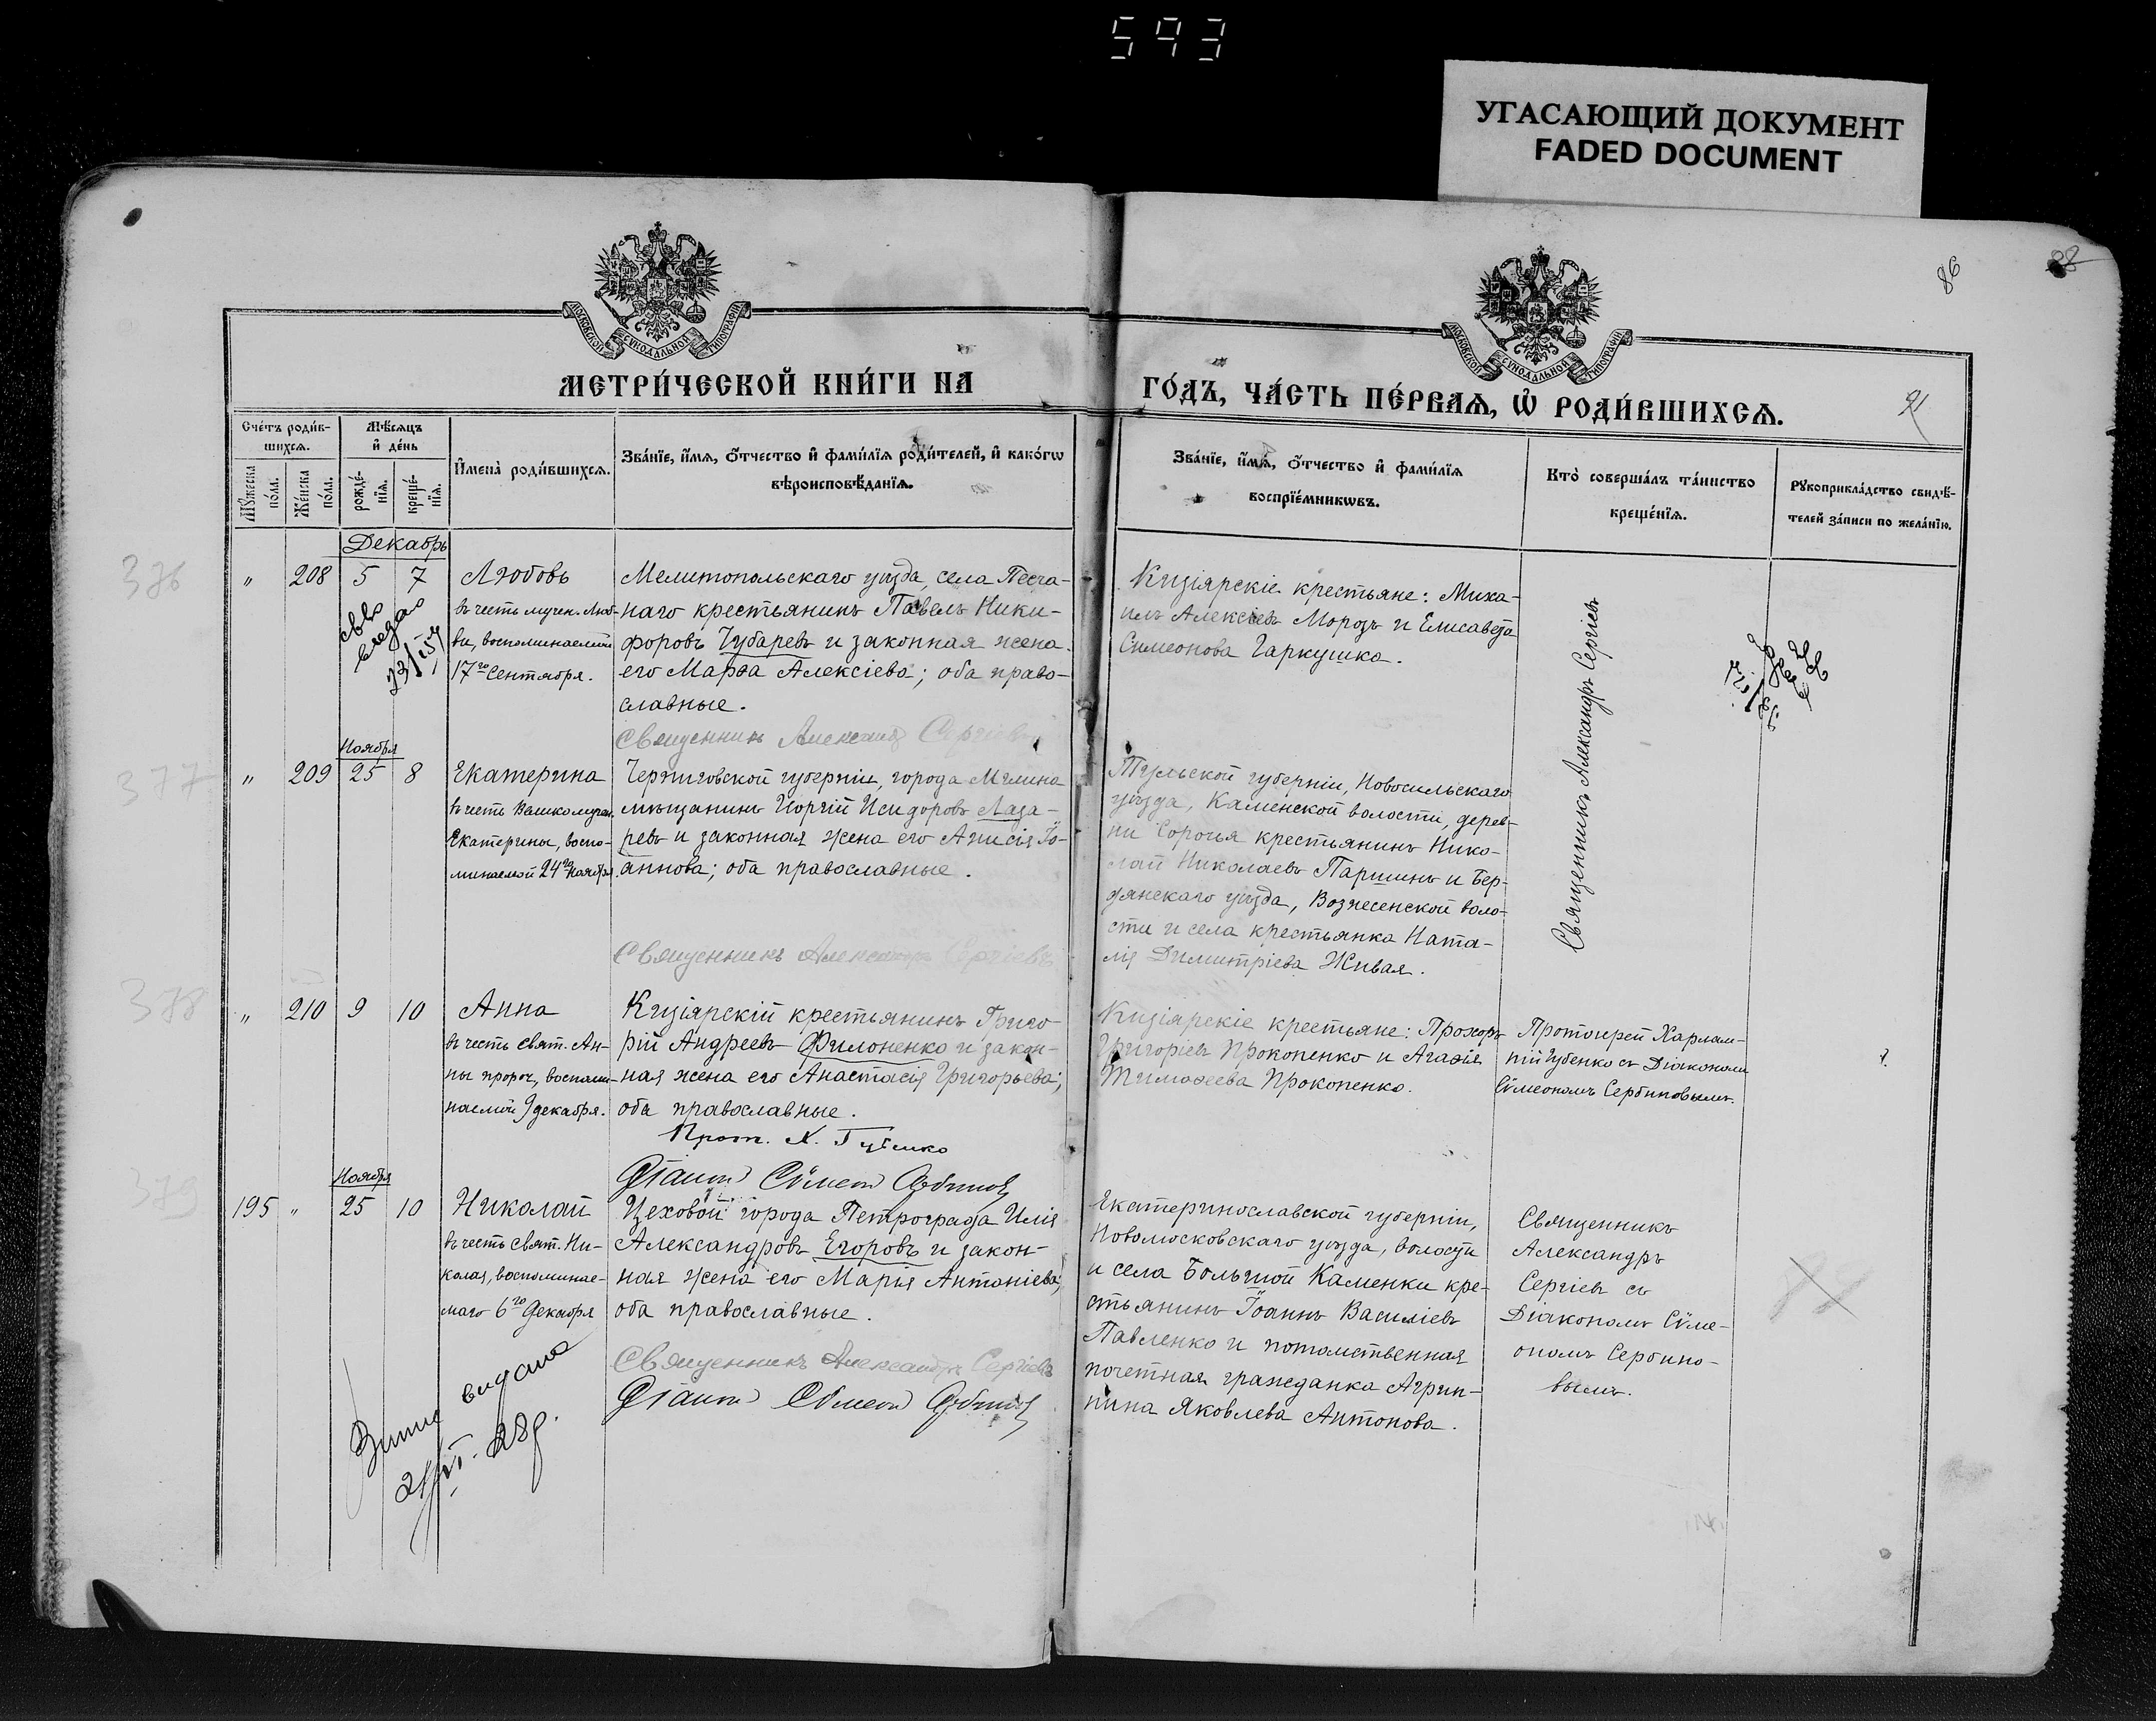 593
УГАСАЮЩИЙ ДОКУМЕНТ
FADED DOCUMENT
86
МОСКОВСКОЙ СѴНОДАЛЬНОЙ ТИПОГРАФІИ
МОСКОВСКОЙ СѴНОДАЛЬНОЙ ТИПОГРАФІИ
МЕТРИ́ЧЕСКОЙ КНИ́ГИ НА
ГО́ДЪ, ЧА́СТЬ ПЕ́РВАЯ, Ѽ РОДИ́ВШИХСЯ.
91
Сче́тъ роди́в-
шихся.
Мѣ́сяцъ
и҆ де́нь
Мꙋ́жеска
по́ла.
Же́нска
по́ла.
рожде́-
нїя.
креще́-
нїя.
И҆мена̀ роди́вшихся.
Зва́нїе, и҆́мя, ѻ҆́тчество и҆ фами́лїя роди́телей, и҆ како́гѡ
вѣроисповѣ́данїя.
Зва́нїе, и҆́мя, ѻ҆́тчество и҆ фами́лїя
воспрїе́мникѡвъ.
Кто̀ соверша́лъ та́инство
креще́нїя.
Рꙋкоприкла́дство свидѣ́-
телей за́писи по жела́нїю.
Декабрь
376
" 208 5 7
Любовь
въ честь мучен. Люб-
ви, воспоминаемой
17го Сентября.
Мелитопольскаго уѣзда, села Песча-
наго крестьянинъ Павелъ Ники-
форовъ Чубаревъ и законная жена
его Марѳа Алексіева; оба право-
славные.
Священникъ Александръ Сергіевъ
Кизіярскіе крестьяне: Миха-
илъ Алексіевъ Морозъ и Елисавета
Симеонова Гаркушка.
Священникъ Александръ Сергіевъ
Ноября
377
" 209 25 8
Екатерина
въ честь Великомучен.
Екатерины, воспо-
минаемой 24го Ноября.
Черниговской губерніи, города Мглина
мѣщанинъ Георгій Исидоровъ Лаза-
ревъ и законная жена его Анисія Іо-
аннова; оба православные.
Священникъ Александръ Сергіевъ
Тульской губерніи, Новосильскаго
уѣзда, Каменской волости, дерев-
ни Сорочья крестьянинъ Нико-
лай Николаевъ Паршинъ и Бер-
дянскаго уѣзда, Вознесенской воло-
сти и села крестьянка Ната-
лія Димитріева Живая.
378
" 210 9 10
Анна
въ честь свят. Ан-
ны пророч., воспоми-
наемой 9 декабря.
Кизіярскій крестьянинъ Григо-
рій Андреевъ Филоненко и закон-
ная жена его Анастасія Григорьева;
оба православные.
Прот. Х. Губенко
Діаконъ Сѵмеонъ Сербиновъ
Кизіярскіе крестьяне: Прохоръ
Григоріевъ Прокопенко и Агафія
Тимоѳеева Прокопенко.
Протоіерей Харлам-
пій Губенко съ Діакономъ
Сѵмеономъ Сербиновымъ.
Ноября
379
195 " 25 10
Николай
въ честь Свят. Ни-
колая, воспоминае-
маго 6го Декабря
Цеховой города Петрограда Илія
Александровъ Егоровъ и закон-
ная жена его Марія Антоніева;
оба православные.
Священникъ Александръ Сергіевъ
Діаконъ Сѵмеонъ Сербиновъ
Екатеринославской губерніи,
Новомосковскаго уѣзда, волости
и села Большой Каменки кре-
стьянинъ Іоаннъ Василіевъ
Павленко и потомственная
почетная гражданка Агрип-
пина Яковлева Антонова.
Священникъ
Александръ
Сергіевъ съ
Діакономъ Сѵме-
ономъ Сербино-
вымъ.
видана